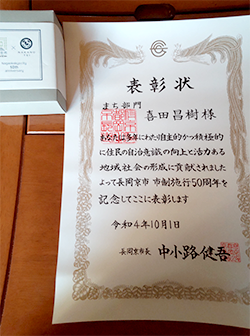 表彰状
まち部門
喜田昌樹様
あなたは多年にわたり自主的かつ積極的
に住民の自治意識の向上と活力ある
地域社会の形成に貢献されました
よって長岡京市市制施行50周年を
記念してここに表彰します
令和4年10月1日
長岡京市長 中小路健吾